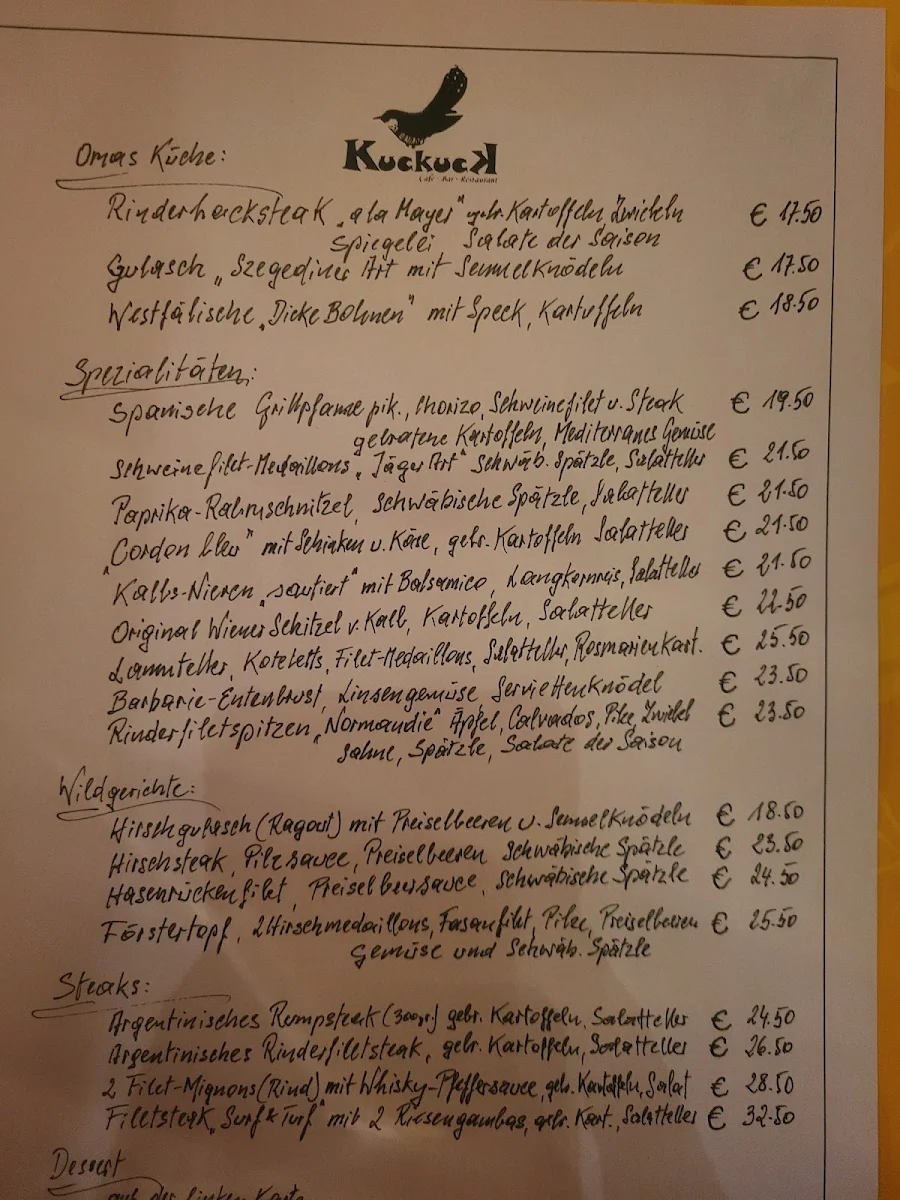 Kuckuck
Café - Bar - Restaurant
Omas Küche:
Rinderhacksteak „a la Mayer" gebr. Kartoffeln, Zwiebeln € 17.50
Spiegelei Salate der Saison
Gulasch „Szegediner Art mit Semmelknödeln € 17.50
Westfälische „Dicke Bohnen" mit Speck, Kartoffeln € 18.50
Spezialitäten:
Spanische Grillpfanne pik., Chorizo, Schweinefilet u. Steak € 19.50
gebratene Kartoffeln, Mediterranes Gemüse
Schweinefilet-Medaillons „Jäger Art" Schwäb. Spätzle, Salatteller € 21.50
Paprika-Rahmschnitzel, Schwäbische Spätzle, Salatteller € 21.50
„Corden bleu" mit Schinken u. Käse, gebr. Kartoffeln Salatteller € 21.50
Kalbs-Nieren „sautiert" mit Balsamico, Langkornreis, Salatteller € 21.50
Original Wiener Schitzel v. Kalb, Kartoffeln, Salatteller € 22.50
Lammteller, Koteletts, Filet-Medaillons, Salatteller, Rosmarienkart. € 25.50
Barbarie-Entenbrust, Linsengemüse Serviettenknödel € 23.50
Rinderfiletspitzen „Normandie" Äpfel, Calvados, Pilze, Zwiebel € 23.50
Sahne, Spätzle, Salate der Saison
Wildgerichte:
Hirschgulasch (Ragout) mit Preiselbeeren u. Semmelknödeln € 18.50
Hirschsteak, Pilzsauce, Preiselbeeren Schwäbische Spätzle € 23.50
Hasenrückenfilet, Preiselbeersauce, Schwäbische Spätzle € 24.50
Förstertopf, 2 Hirschmedaillons, Fasanfilet, Pilze, Preiselbeeren € 25.50
Gemüse und Schwäb. Spätzle
Steaks:
Argentinisches Rumpsteak (300gr.) gebr. Kartoffeln, Salatteller € 24.50
Argentinisches Rinderfiletsteak, gebr. Kartoffeln, Salatteller € 26.50
2 Filet-Mignons (Rind) mit Whisky-Pfeffersauce, geb. Kartoffeln, Salat € 28.50
Filetsteak „Surf & Turf" mit 2 Riesengambas, gebr. Kart., Salatteller € 32.50
Dessert
auf der linken Karte